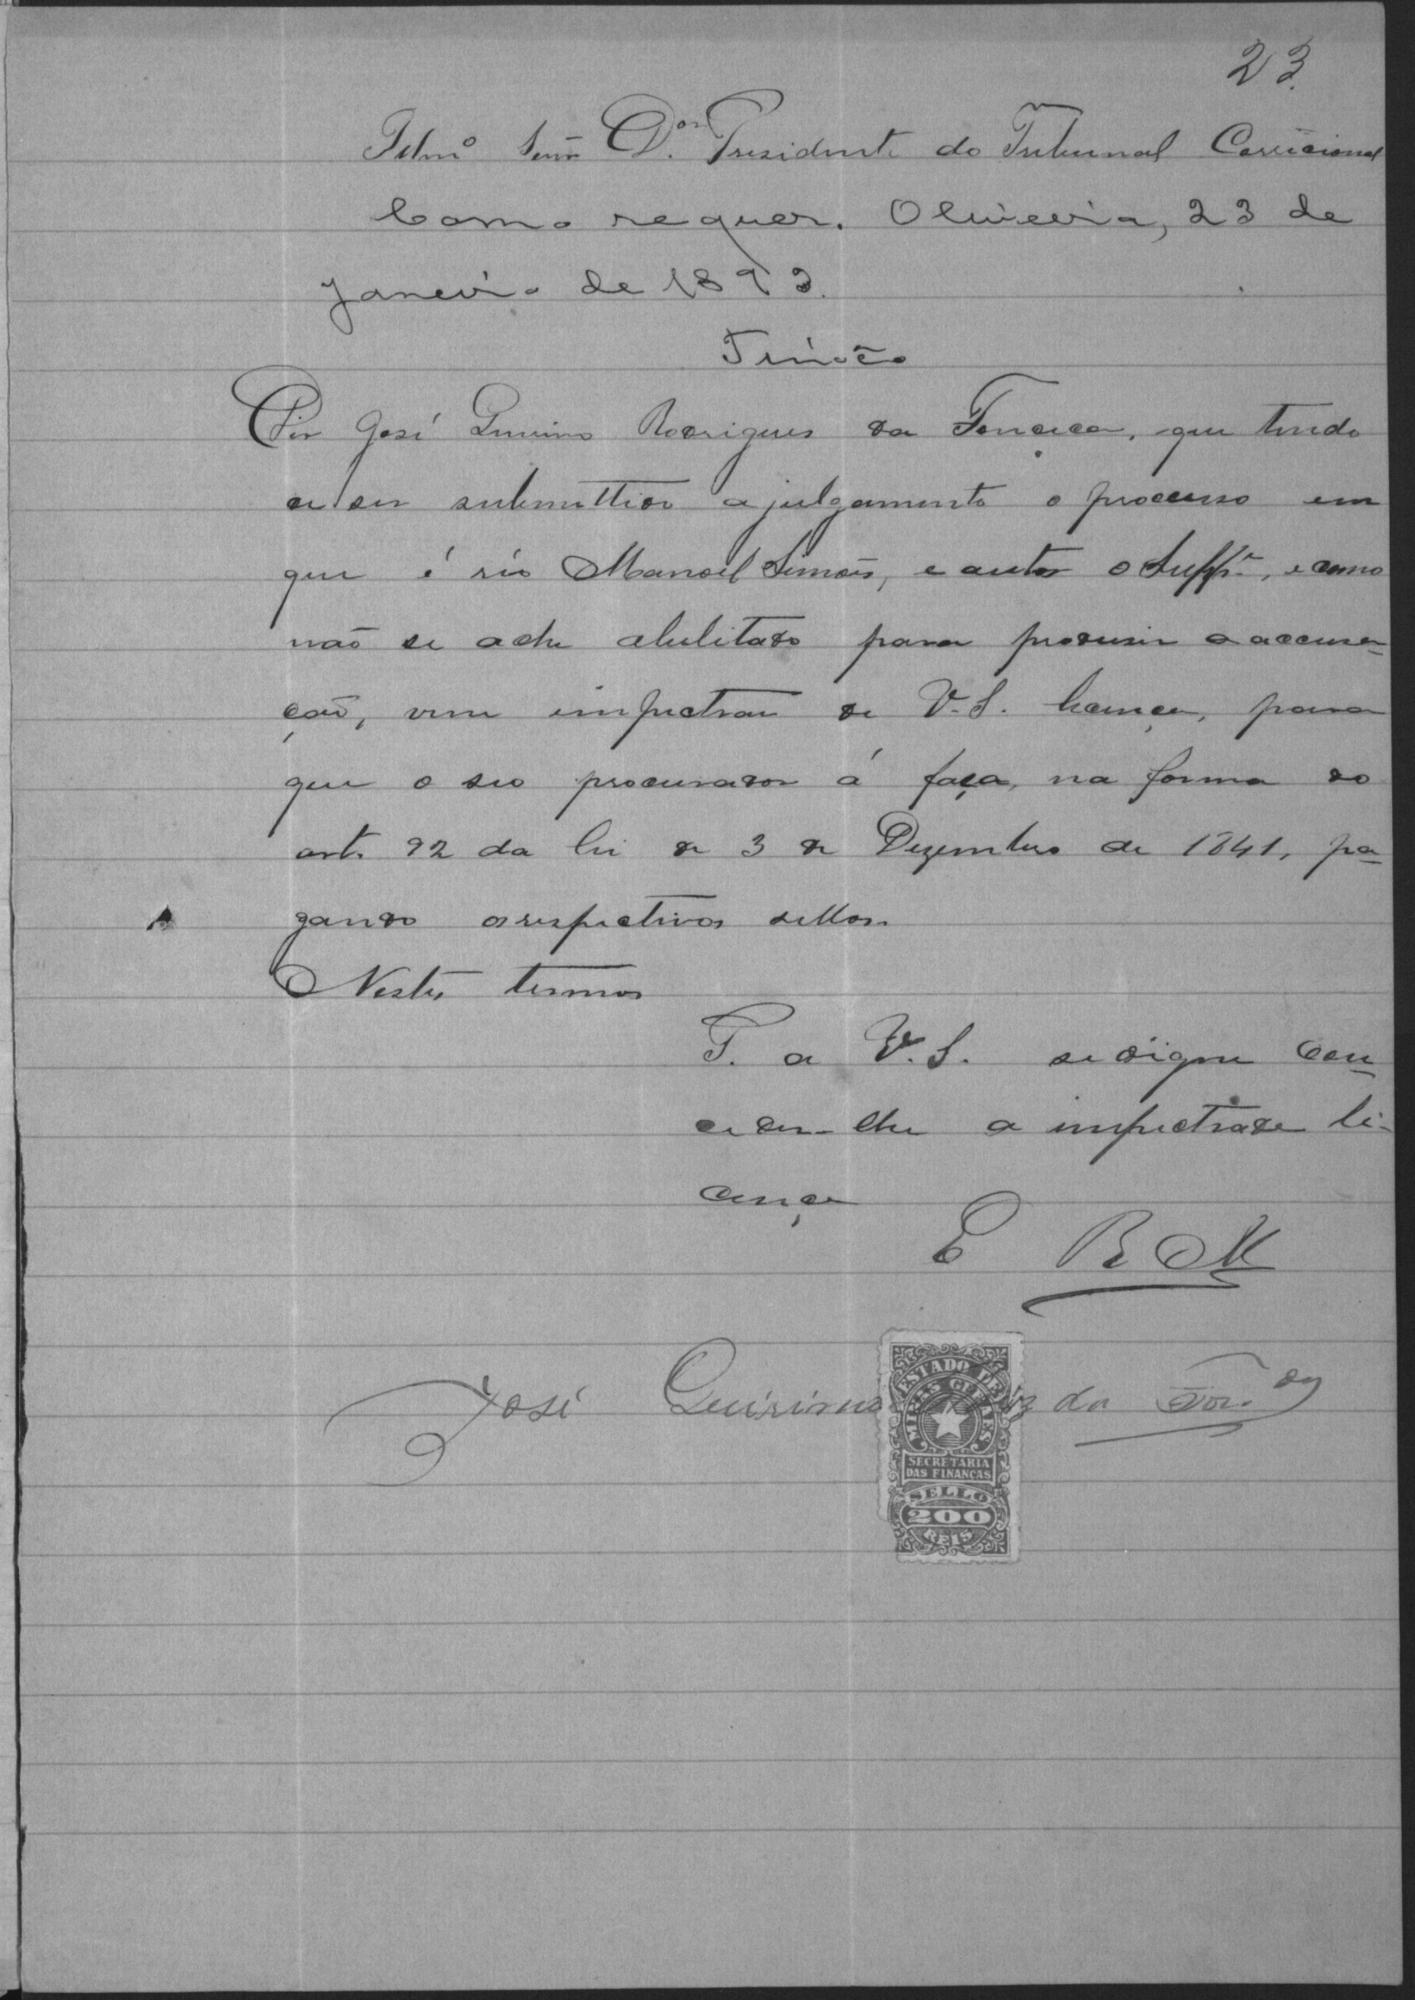 23.
Illmº Senr. Dor. Presidente do Tribunal Correicional
Como requer. Oliveira, 23 de
Janeiro de 1893.
Diz José Quirino Rodrigues da Fonceca, que tendo
de ser submettido a julgamento o processo em
que é réo Manoel Simões, e autor o Suppe., e como
não se ache abilitado para produsir a accusa-
ção, vem impetrar de V. S. licença, para
que o seo procurador á faça, na forma do
art. 92 da lei de 3 de Dezembro de 1841, pa-
gando os respectivos sellos.
Nestes termos
P. a V. S. se digne con-
ceder-lhe a impetrada li-
cença
E R M
José Quirino Roiz da Fonca
ESTADO DE
MINAS GERAES
SECRETARIA
DAS FINANÇAS
SELLO
200
REIS